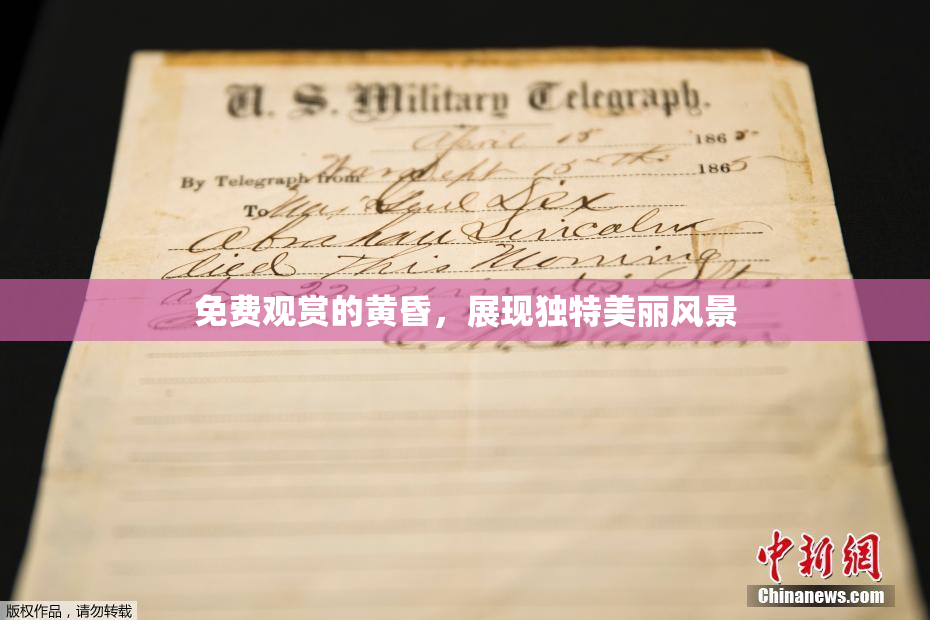 U. S. Military Telegraph.
April 15 1865
By Telegraph from War Dept 15th 1865
To Maj Genl Dix
Abraham Lincoln
died This Morning
at 22 minutes after
免费观赏的黄昏，展现独特美丽风景
E. M. Stanton
中新网
Chinanews.com
版权作品，请勿转载